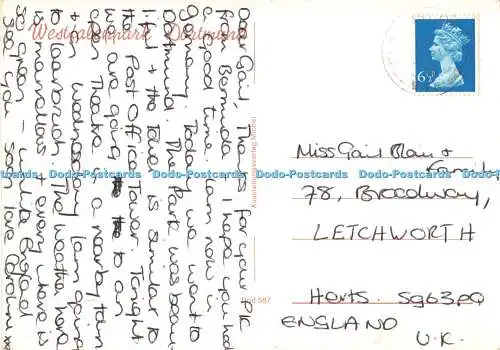 Westfalenpark Dortmund
Dear Gail, Thanks for your P/C
from Bermuda. I hope you had
a good time. I am now in
Germany. Today we went to
Dortmund. The Park was beaut
iful + the Tower is similar to
the Post Office Tower. Tonight
we are going to an
open Theatre in a nearby town
+ on Wednesday I am going
to The weather here
is marvellous + every where is
so green - unlike England
See you soon love Caroline xx
Ausblick Kunstverlag Michel
Dort 587
6½P
Miss Gail Blow +
Family
78, Broadway,
LETCHWORTH
Herts. SG6 3PQ
ENGLAND
U.K.
Dodo-Postcards Dodo-Postcards Dodo-Postcards
Dodo-Postcards Dodo-Postcards Dodo-Postcards